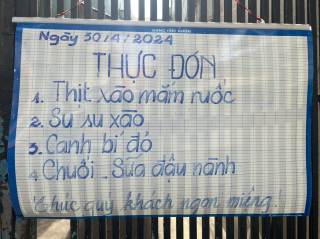 Ngày 30/4/2024
THỰC ĐƠN
1. Thịt xào mắm ruốc
2. Su su xào
3. Canh bí đỏ
4. Chuối - Sữa đậu nành
Chúc quý khách ngon miệng!